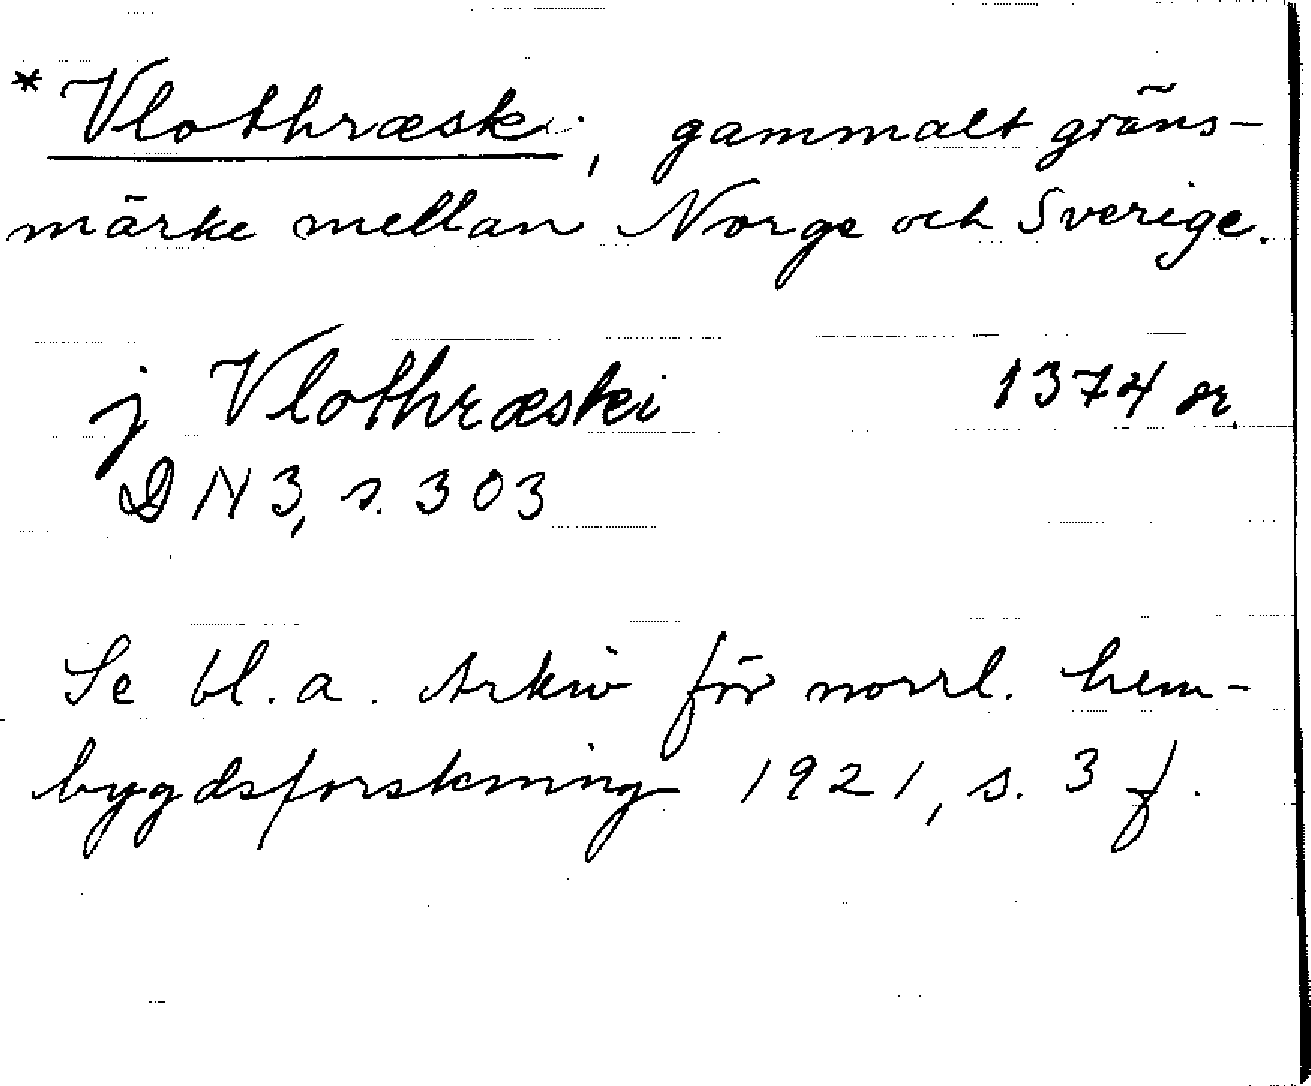 * Vlothræsk, gammalt gräns-
märke mellan Norge och Sverige.
j Vlothræski 1374 or.
DN 3, s. 303
Se bl. a. Arkiv för norrl. hem-
bygdsforskning 1921, s. 3 f.